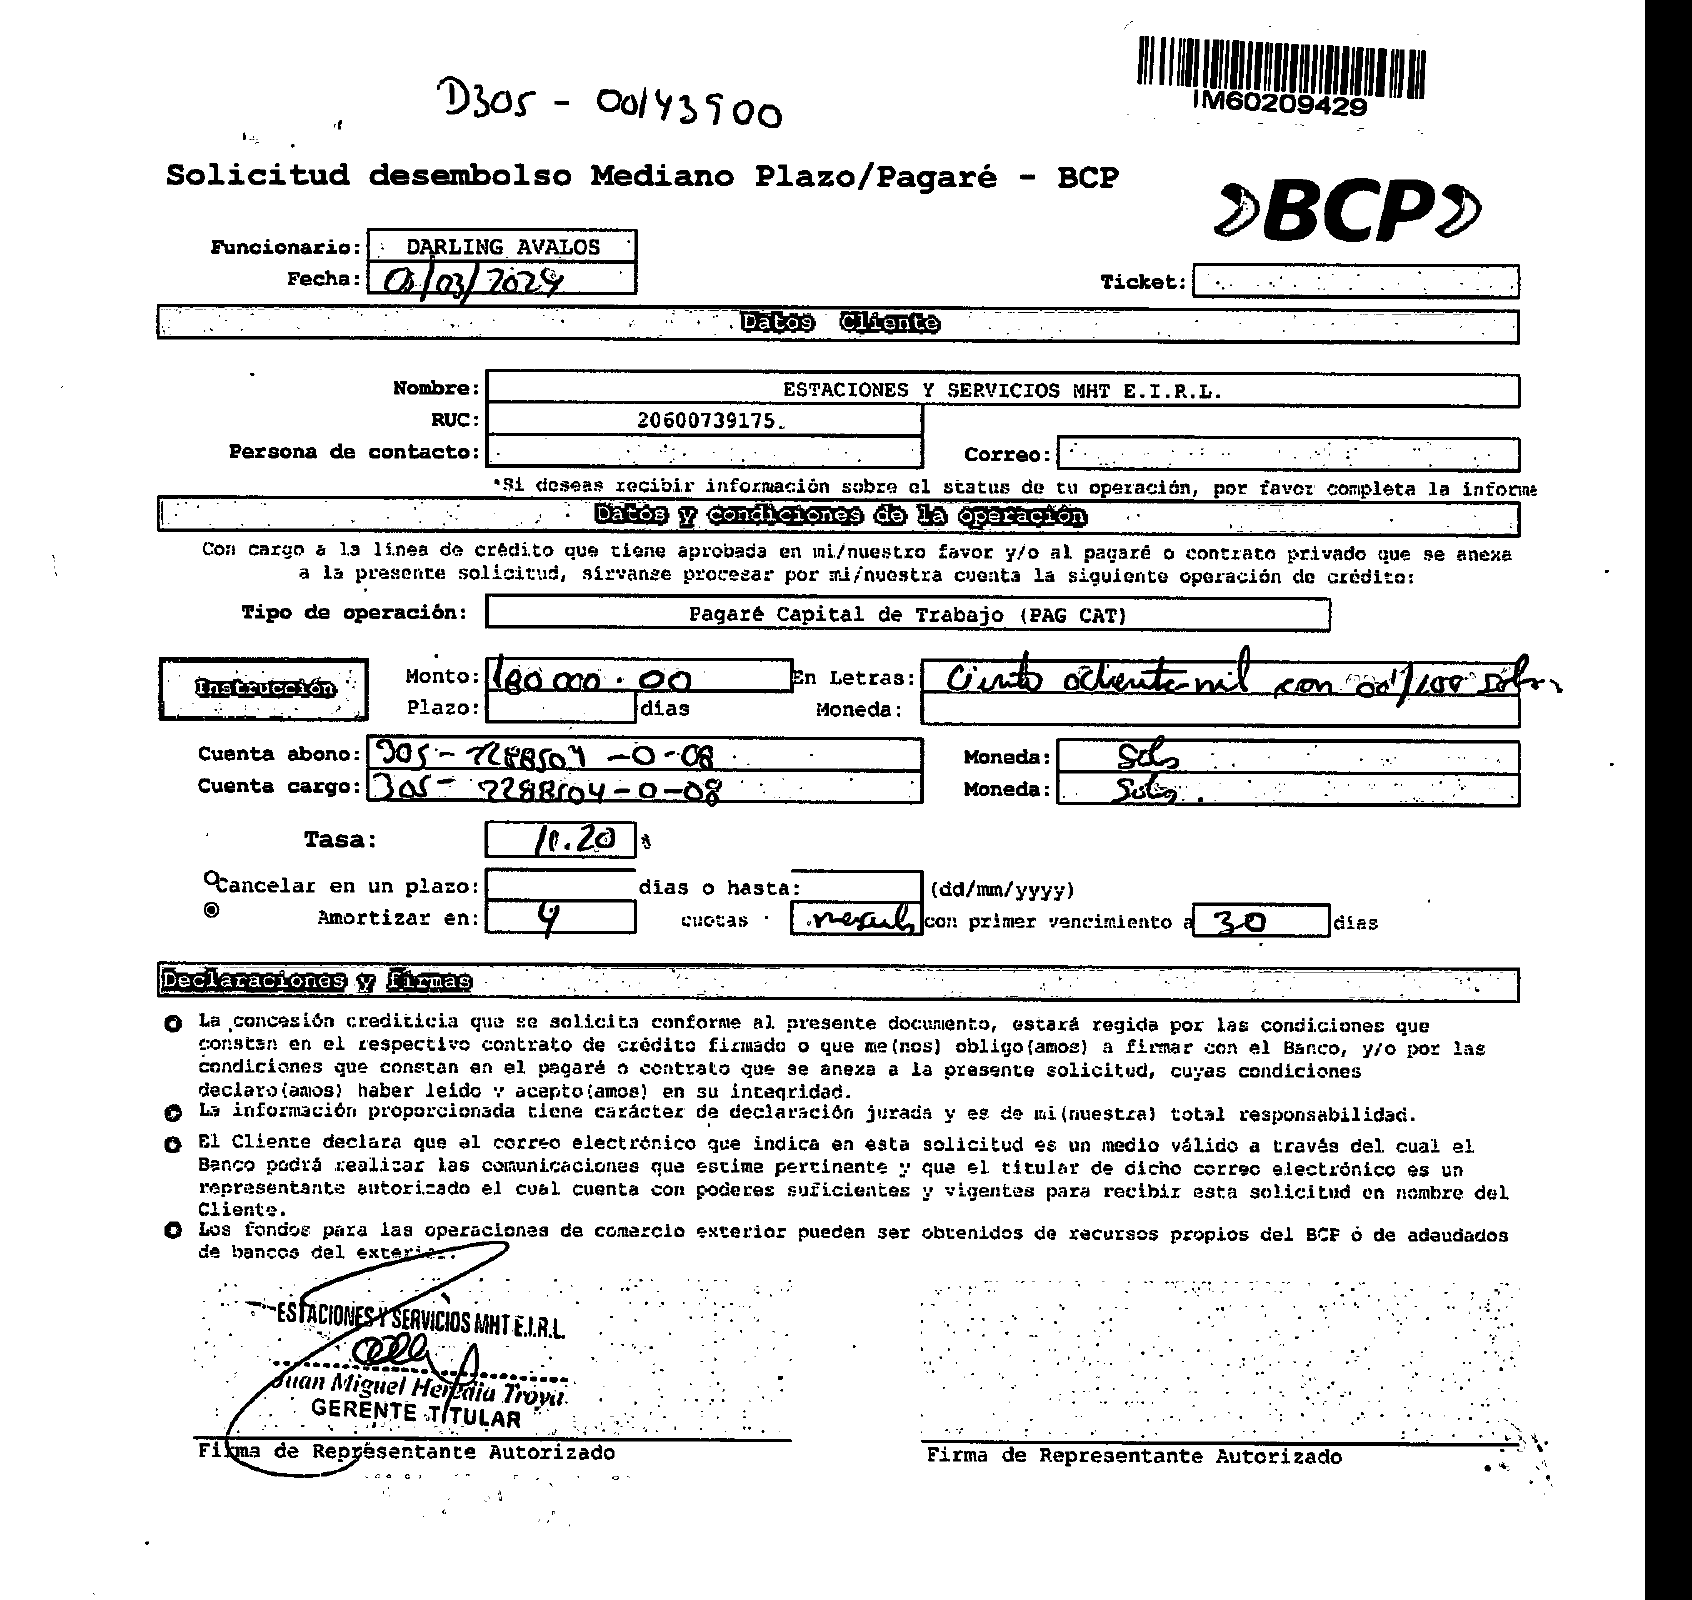 IM60209429
D305 - 00143900
Solicitud desembolso Mediano Plazo/Pagaré - BCP
BCP
Funcionario: DARLING AVALOS
Fecha: /03/2024
Ticket:
Datos Cliente
Nombre: ESTACIONES Y SERVICIOS MHT E.I.R.L.
RUC: 20600739175.
Persona de contacto: Correo:
*Si deseas recibir información sobre el status de tu operación, por favor completa la informa
Datos y condiciones de la operación
Con cargo a la línea de crédito que tiene aprobada en mi/nuestro favor y/o al pagaré o contrato privado que se anexa
a la presente solicitud, sírvanse procesar por mi/nuestra cuenta la siguiente operación de crédito:
Tipo de operación: Pagaré Capital de Trabajo (PAG CAT)
Instrucción
Monto: 180 000.00 En Letras: Ciento ochenta mil con 00/100 Soles
Plazo: días Moneda:
Cuenta abono: 305- -0-08 Moneda: Soles
Cuenta cargo: 305- 2288504-0-08 Moneda: Soles.
Tasa: .20 %
Cancelar en un plazo: días o hasta: (dd/mm/yyyy)
Amortizar en: 4 cuotas mensuales con primer vencimiento a 30 días
Declaraciones y firmas
La concesión crediticia que se solicita conforme al presente documento, estará regida por las condiciones que
constan en el respectivo contrato de crédito firmado o que me(nos) obligo(amos) a firmar con el Banco, y/o por las
condiciones que constan en el pagaré o contrato que se anexa a la presente solicitud, cuyas condiciones
declaro(amos) haber leído y acepto(amos) en su integridad.
La información proporcionada tiene carácter de declaración jurada y es de mi(nuestra) total responsabilidad.
El Cliente declara que el correo electrónico que indica en esta solicitud es un medio válido a través del cual el
Banco podrá realizar las comunicaciones que estime pertinente y que el titular de dicho correo electrónico es un
representante autorizado el cual cuenta con poderes suficientes y vigentes para recibir esta solicitud en nombre del
Cliente.
Los fondos para las operaciones de comercio exterior pueden ser obtenidos de recursos propios del BCP ó de adeudados
de bancos del exterior.
ESTACIONES Y SERVICIOS MHT E.I.R.L.
Juan Miguel Heredia Troya
GERENTE TITULAR
Firma de Representante Autorizado Firma de Representante Autorizado